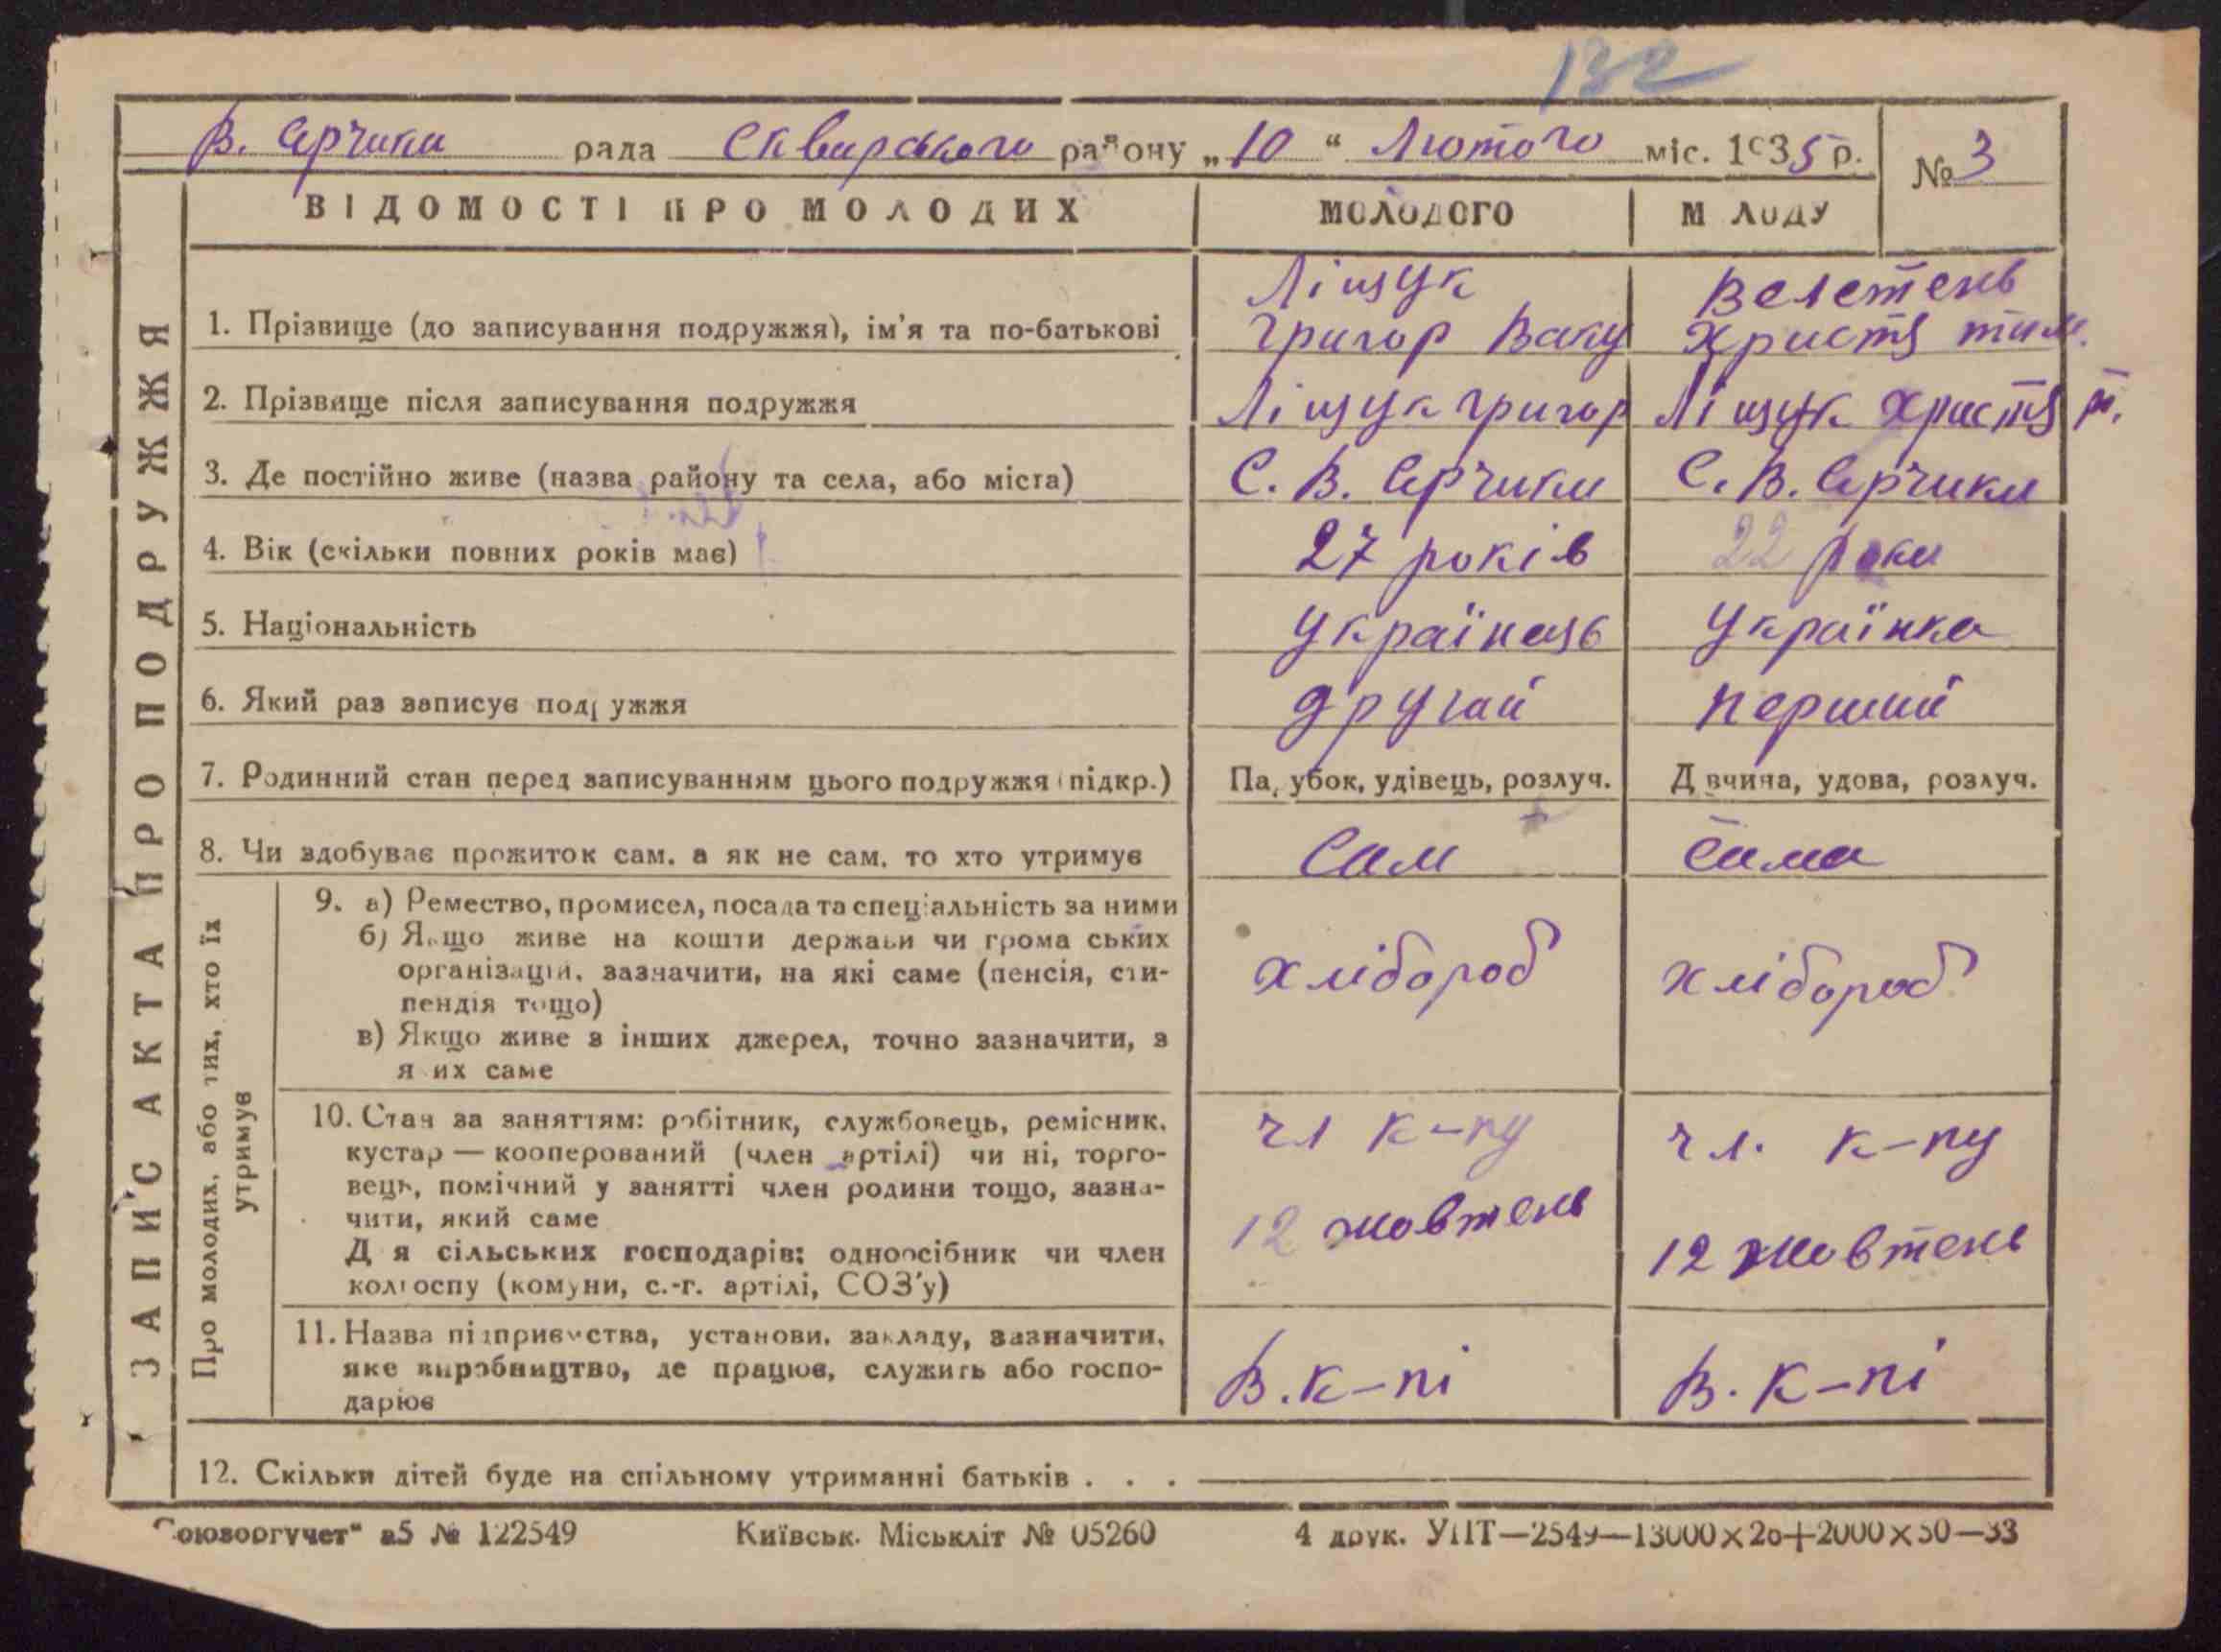 132
В. Єрчики рада Сквирського району „10“ Лютого міс. 1935 р. № 3
ВІДОМОСТІ ПРО МОЛОДИХ МОЛОДОГО М ЛОДУ
ЗАПИС АКТА ПРО ПОДРУЖЖЯ
Ліщук Велетень
1. Прізвище (до записування подружжя), ім’я та по-батькові Григор Ваку Христя тим.
2. Прізвище після записування подружжя Ліщук Григор Ліщук Христя т.
3. Де постійно живе (назва району та села, або міста) С. В. Єрчики С. В. Єрчики
4. Вік (скільки повних років має) 27 років 22 роки
5. Національність Українець Українка
6. Який раз записує подружжя другий перший
7. Родинний стан перед записуванням цього подружжя (підкр.) Па убок, удівець, розлуч. Д вчина, удова, розлуч.
8. Чи здобуває прожиток сам, а як не сам, то хто утримує Сам Сама
Про молодих, або тих, хто їх утримує
9. а) Ремество, промисел, посада та спеціальність за ними
б) Якщо живе на кошти держави чи грома ських
організацій, зазначити, на які саме (пенсія, сти- хлібороб хлібороб
пендія тощо)
в) Якщо живе з інших джерел, точно зазначити, з
я их саме
10. Стан за заняттям: робітник, службовець, ремісник, чл к-пу чл. к-пу
кустар — кооперований (член артілі) чи ні, торго-
вець, помічний у занятті член родини тощо, зазна-
чити, який саме 12 жовтень 12 жовтень
Д я сільських господарів: одноосібник чи член
колгоспу (комуни, с.-г. артілі, СОЗ’у)
11. Назва підприємства, установи, закладу, зазначити,
яке виробництво, де працює, служить або госпо- В. к-пі В. к-пі
дарює
12. Скільки дітей буде на спільному утриманні батьків . . .
оюзоргучет“ а5 № 122549 Київськ. Міськліт № 05260 4 друк. УПТ—2549—13000×20+2000×50—33